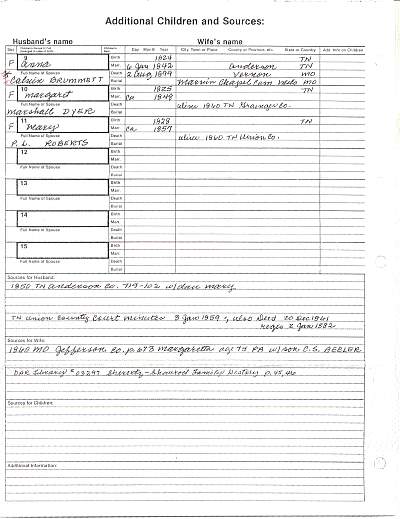 Additional Children and Sources:
Husband's name Wife's name
Sex Children's Day Month Year City, Town or Place County or Province, etc. State or Country Add. Info on Children
9 Birth 1824 TN
F Anna Marr. 6 Jan 1842 Anderson TN
Full Name of Spouse Death 2 Aug 1899 Vernon MO
Calvin BRUMMETT Burial Marvin Chapel Cem MO
10 Birth 1825 TN
F Margaret Marr. ca 1848
Full Name of Spouse Death alive 1860 TN Grainger Co.
Marshall DYER Burial
11 Birth 1828 TN
F Mary Marr. ca 1857
Full Name of Spouse Death alive 1860 TN Union Co.
P. L. ROBERTS Burial
12 Birth
Marr.
Full Name of Spouse Death
Burial
13 Birth
Marr.
Full Name of Spouse Death
Burial
14 Birth
Marr.
Full Name of Spouse Death
Burial
15 Birth
Marr.
Full Name of Spouse Death
Burial
Sources for Husband:
1850 TN Anderson Co. 719-102 w/dau Mary
TN Union County Court Minutes 3 Jan 1859, also Deed 20 Dec 1861
Sources for Wife:
1860 MO Jefferson Co. p. 673 Margaretta age 75 PA w/son C. S. BEELER
DAR Library # Sheretz - Shourod Family History p. 45, 46
Sources for Children:
Additional Information: